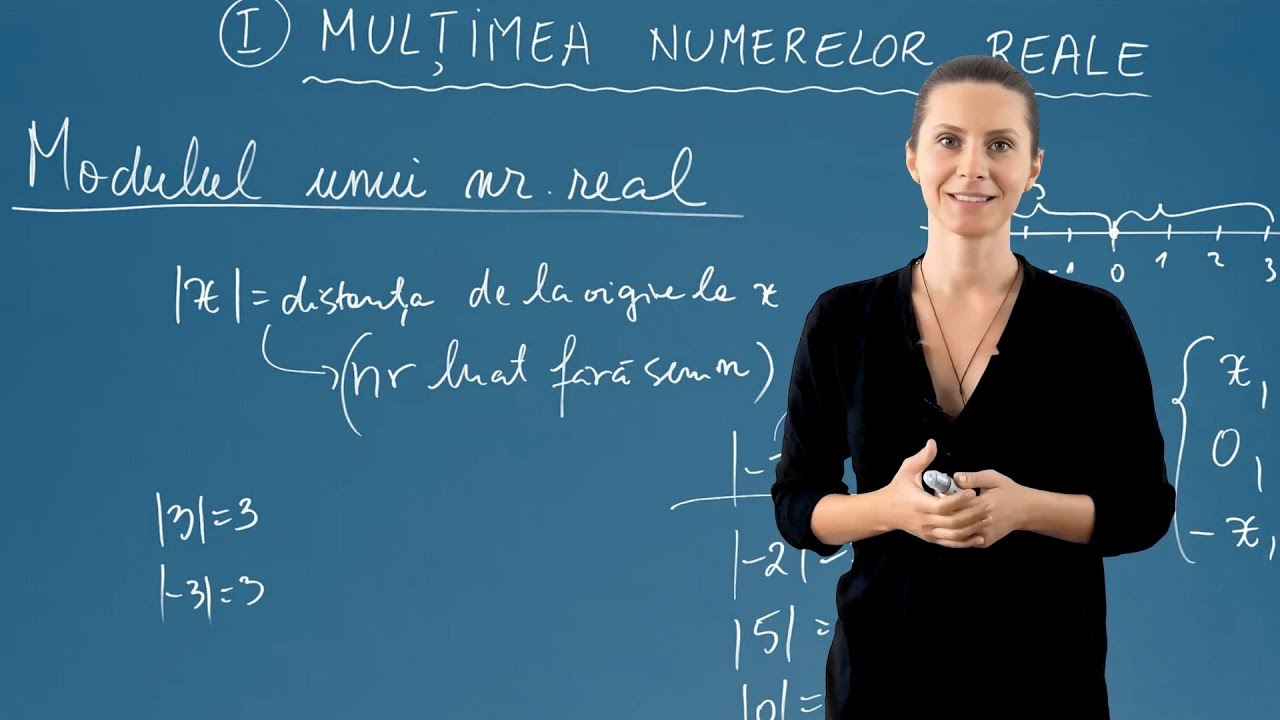 I MULȚIMEA NUMERELOR REALE
Modulul unui nr. real
|x| = distanța de la origine la x
(nr luat fară semn)
|3|=3
|-3|=3
3
-1 0 1 2 3
|-
|-2|=
|5|=
|0|=
x,
0,
-x,